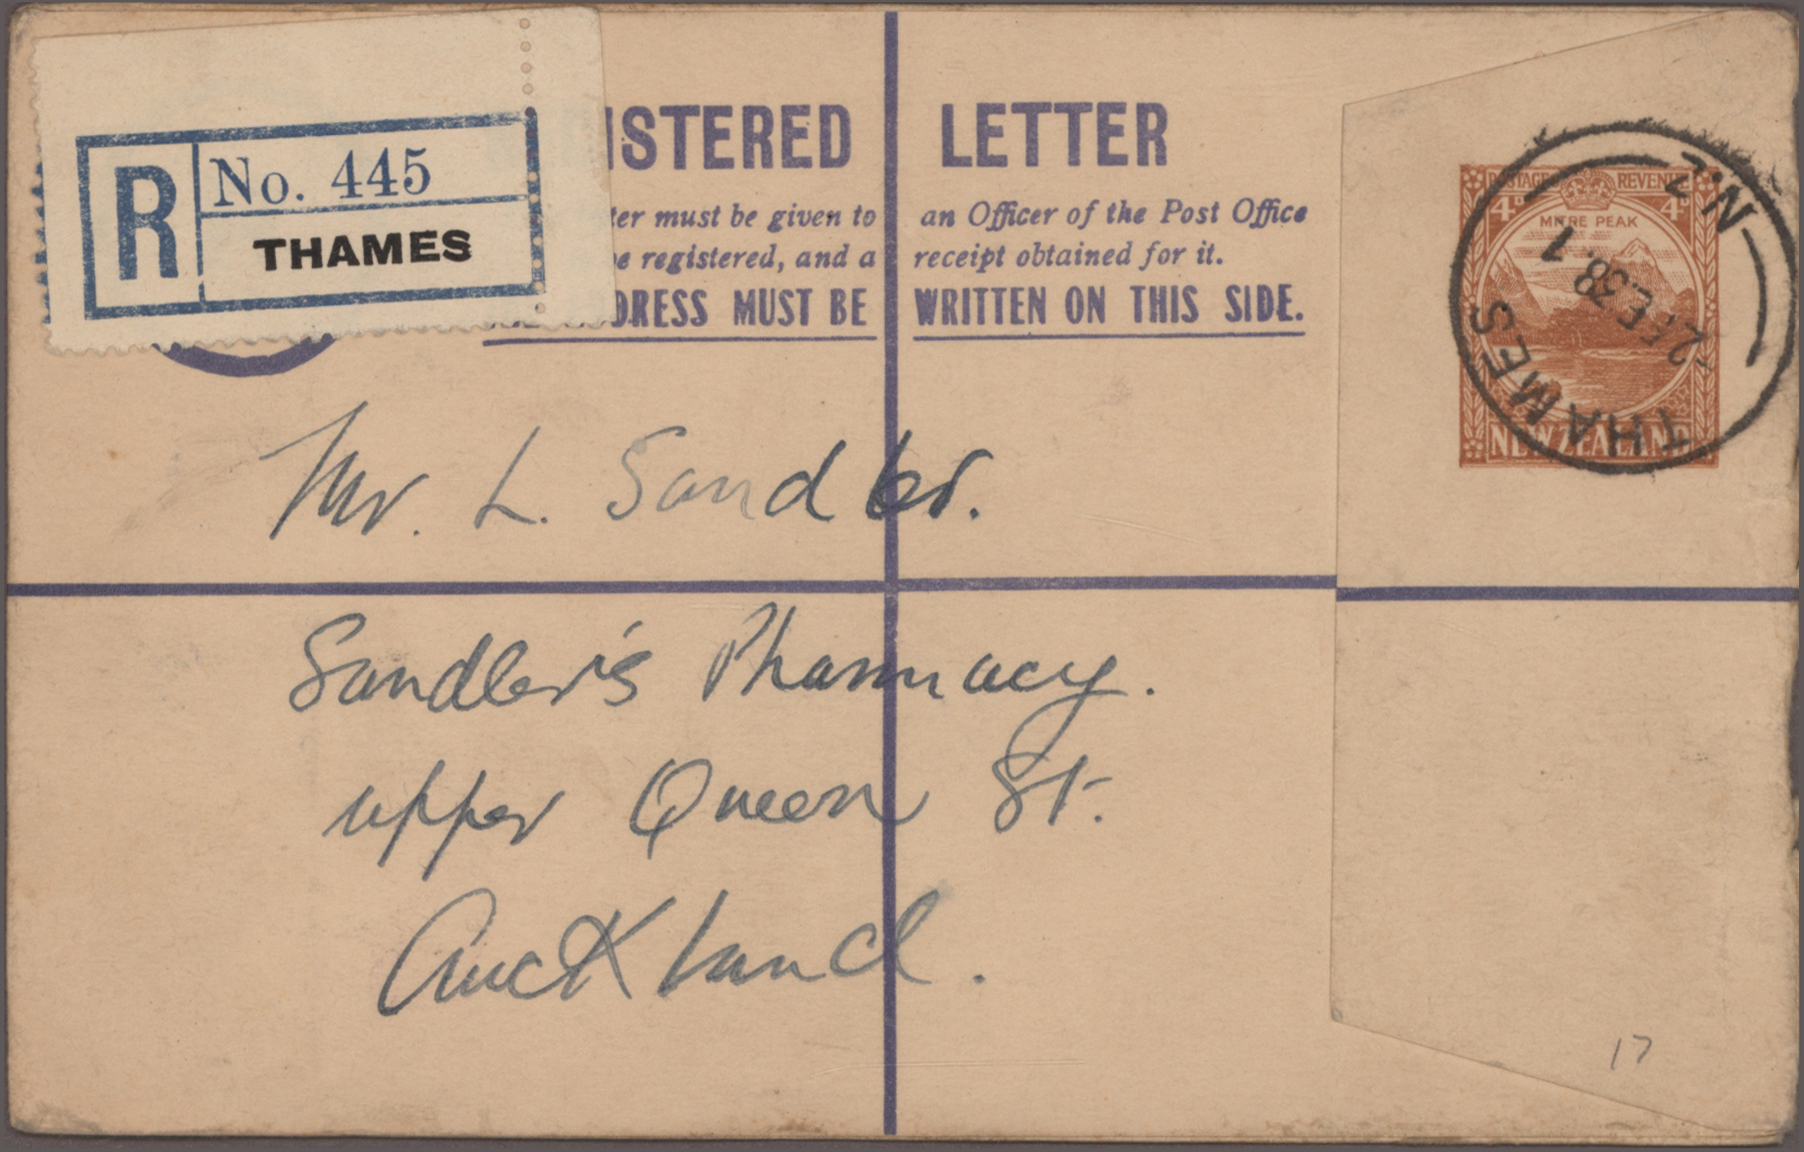 R
No. 445
THAMES
ISTERED LETTER
ter must be given to an Officer of the Post Office
be registered, and a receipt obtained for it.
DRESS MUST BE WRITTEN ON THIS SIDE.
POSTAGE REVENUE
4D 4D
MITRE PEAK
NEW ZEALAND
THAMES N.Z
2 FE 38.1
Mr. L. Sandler.
Sandler's Pharmacy.
upper Queen St.
Auckland.
17